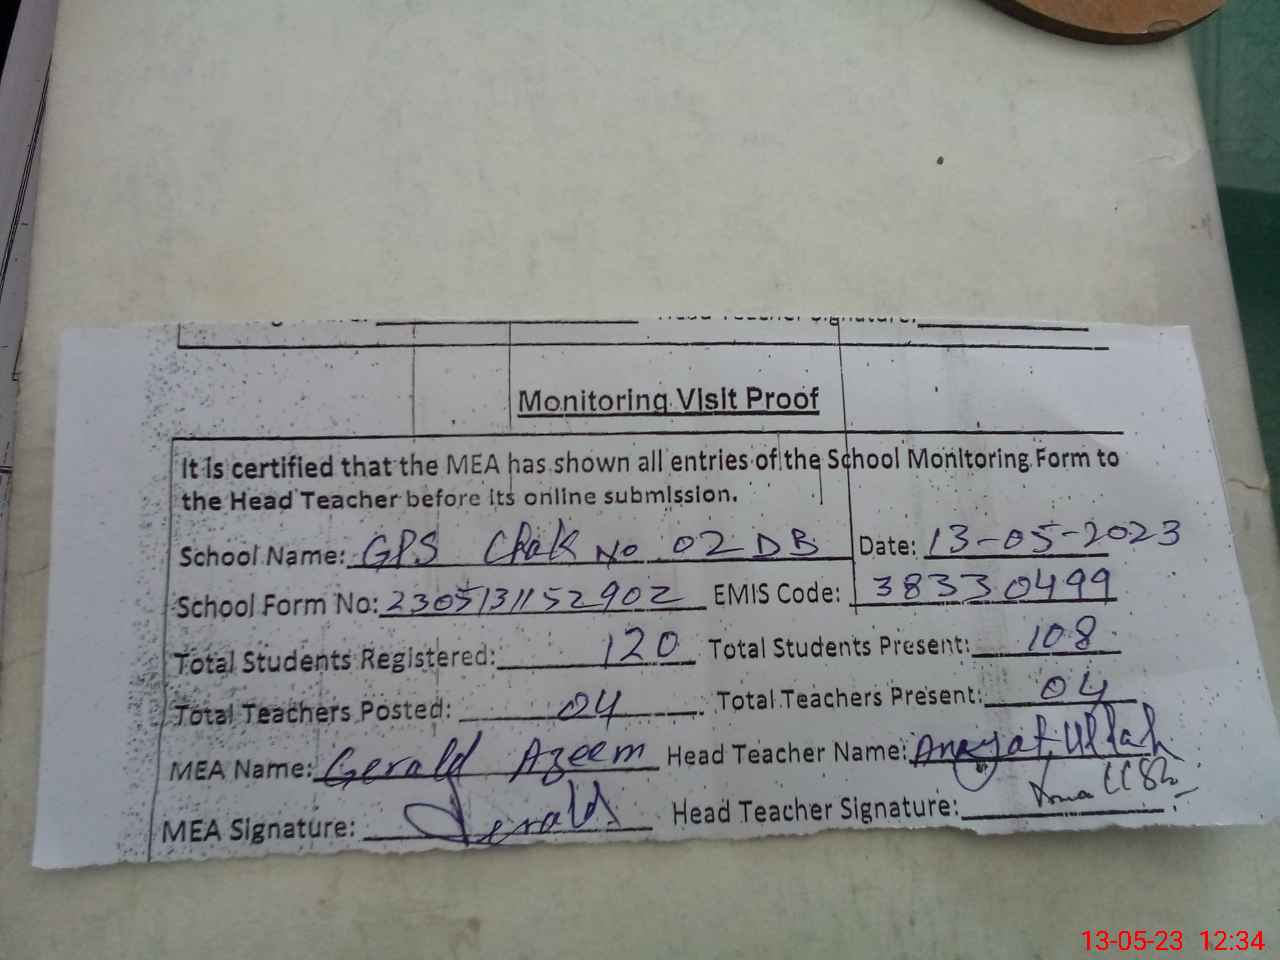 Head Teacher Signature:
Monitoring Visit Proof
It is certified that the MEA has shown all entries of the School Monitoring Form to
the Head Teacher before its online submission.
School Name: GPS Chak No 02 DB Date: 13-05-2023
School Form No: 2305131152902 EMIS Code: 38330499
Total Students Registered: 120 Total Students Present: 108
Total Teachers Posted: 04 Total Teachers Present: 04
MEA Name: Gerald Azeem Head Teacher Name: Anayat Ullah
MEA Signature: Gerald Head Teacher Signature:
13-05-23 12:34